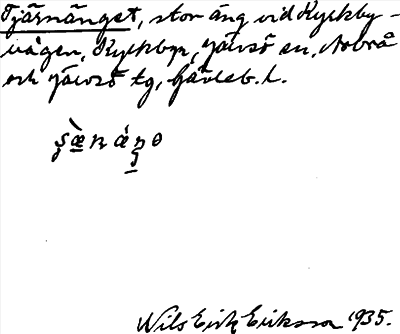 Tjärnänget, stor äng vid Kyrkby-
vägen, Kyrkbyn, Järvsö sn, Arbrå
och Järvsö tg, Gävleb. l.
Nils Erik Eriksson 1935.